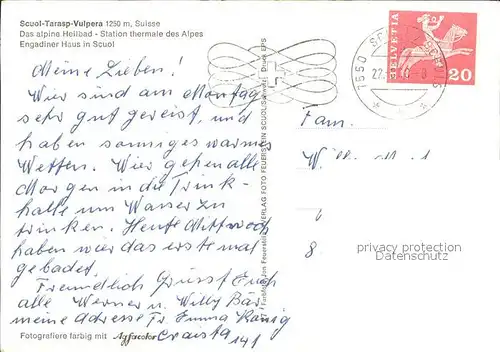 Scuol-Tarasp-Vulpera 1250 m, Suisse
Das alpine Heilbad - Station thermale des Alpes
Engadiner Haus in Scuol
Meine Lieben!
Wier sind am Montag
sehr gut gereist, und
haben sonniges warmes
Wetter. Wier gehen alle
Morgen in die Trink-
halle um Wasser zu
trinken. Heute Mittwoch
haben wier das erste mal
gebadet.
Freundlich Grüsst Euch
alle Werner u. Willy Bär
meine Adresse Fr Emma König
Craista
141
Fotografiere farbig mit Agfacolor
VERLAG FOTO FEUERSTEIN SCUOL
7550
HELVETIA
20
Fam.
8
privacy protection
Datenschutz